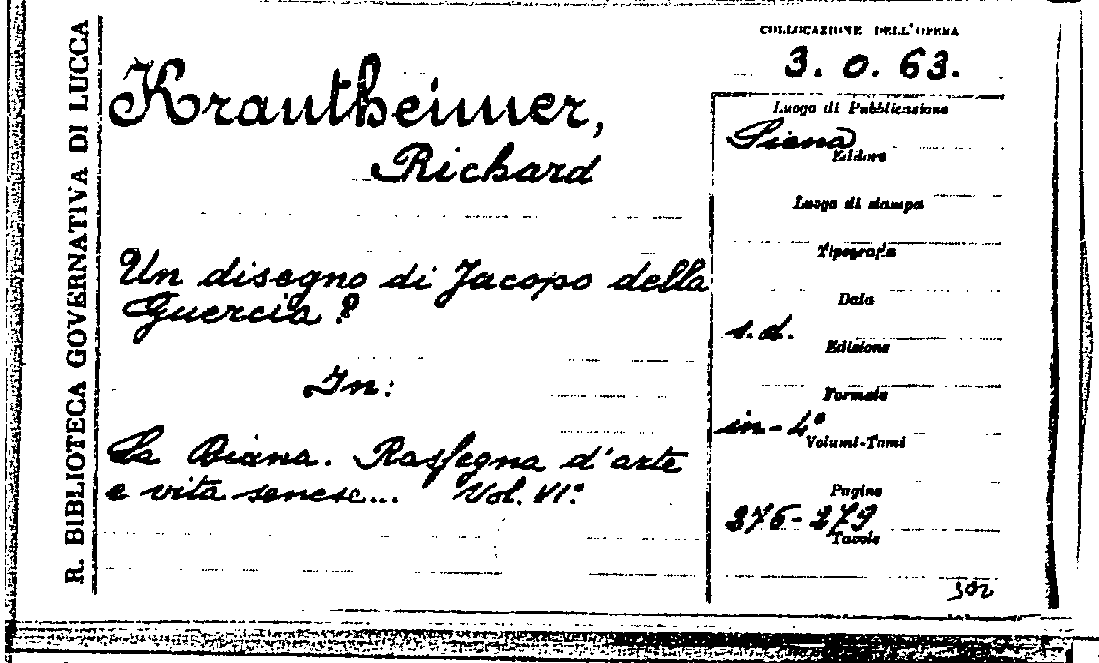 R. BIBLIOTECA GOVERNATIVA DI LUCCA
Krautheimer,
Richard
Un disegno di Jacopo della
Guercia?
In:
La Diana. Rassegna d'arte
e vita senese... Vol. VI°
COLLOCAZIONE DELL'OPERA
3. 0. 63.
Luogo di Pubblicazione
Siena
Editore
Luogo di stampa
Tipografia
Data
s.d.
Edizione
Formato
in-4°
Volumi-Tomi
Pagine
276-279
Tavole